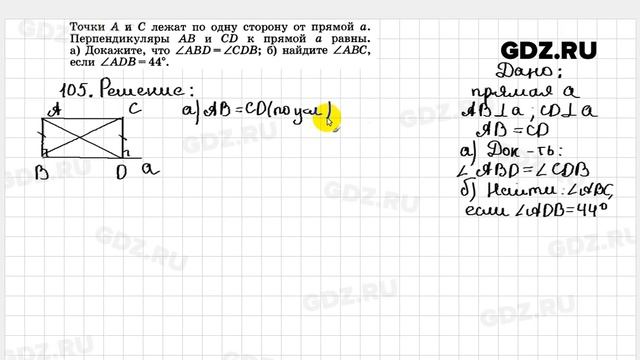 Точки A и C лежат по одну сторону от прямой a.
Перпендикуляры AB и CD к прямой a равны.
а) Докажите, что ∠ABD=∠CDB; б) найдите ∠ABC,
если ∠ADB=44°.
GDZ.RU
105. Решение:
а) AB=CD(по усл)
A C
B D a
Дано:
прямая a
AB⊥a ; CD⊥a
AB=CD
а) Док-ть:
∠ABD=∠CDB
б) Найти: ∠ABC,
если ∠ADB=44°
GDZ.RU
GDZ.RU
GDZ.RU
GDZ.RU
GDZ.RU
GDZ.RU